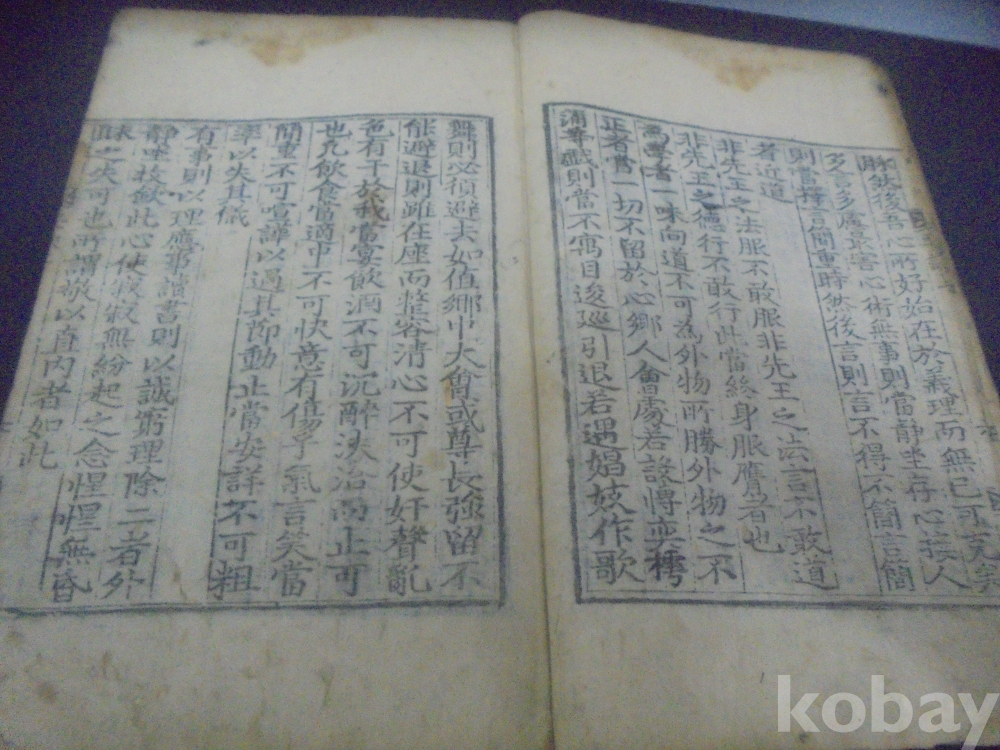 然後吾心所好始在於義理而無已可克矣
多言多慮最害心術無事則當靜坐存心接人
則當擇言簡重時然後言則言不得不簡言簡
者近道
非先王之法服不敢服非先王之法言不敢道
非先王之德行不敢行此當終身服膺者也
爲學者一味向道不可為外物所勝外物之不
正者當一切不留於心鄉人會處若設博奕樗
蒲等戲則當不寓目逡巡引退若遇娼妓作歌
舞則必須避去如值鄉中大會或尊長強留不
能避退則雖在座而整容清心不可使奸聲亂
色有干於我當宴飲酒不可沉醉浹洽而止可
也凡飲食當適中不可快意有傷乎氣言笑當
簡重不可喧譁以過其節動止當安詳不可粗
率以失其儀
有事則以理應事讀書則以誠窮理除二者外
靜坐收斂此心使寂寂無紛起之念惺惺無昏
昧之失可也所謂敬以直內者如此
kobay